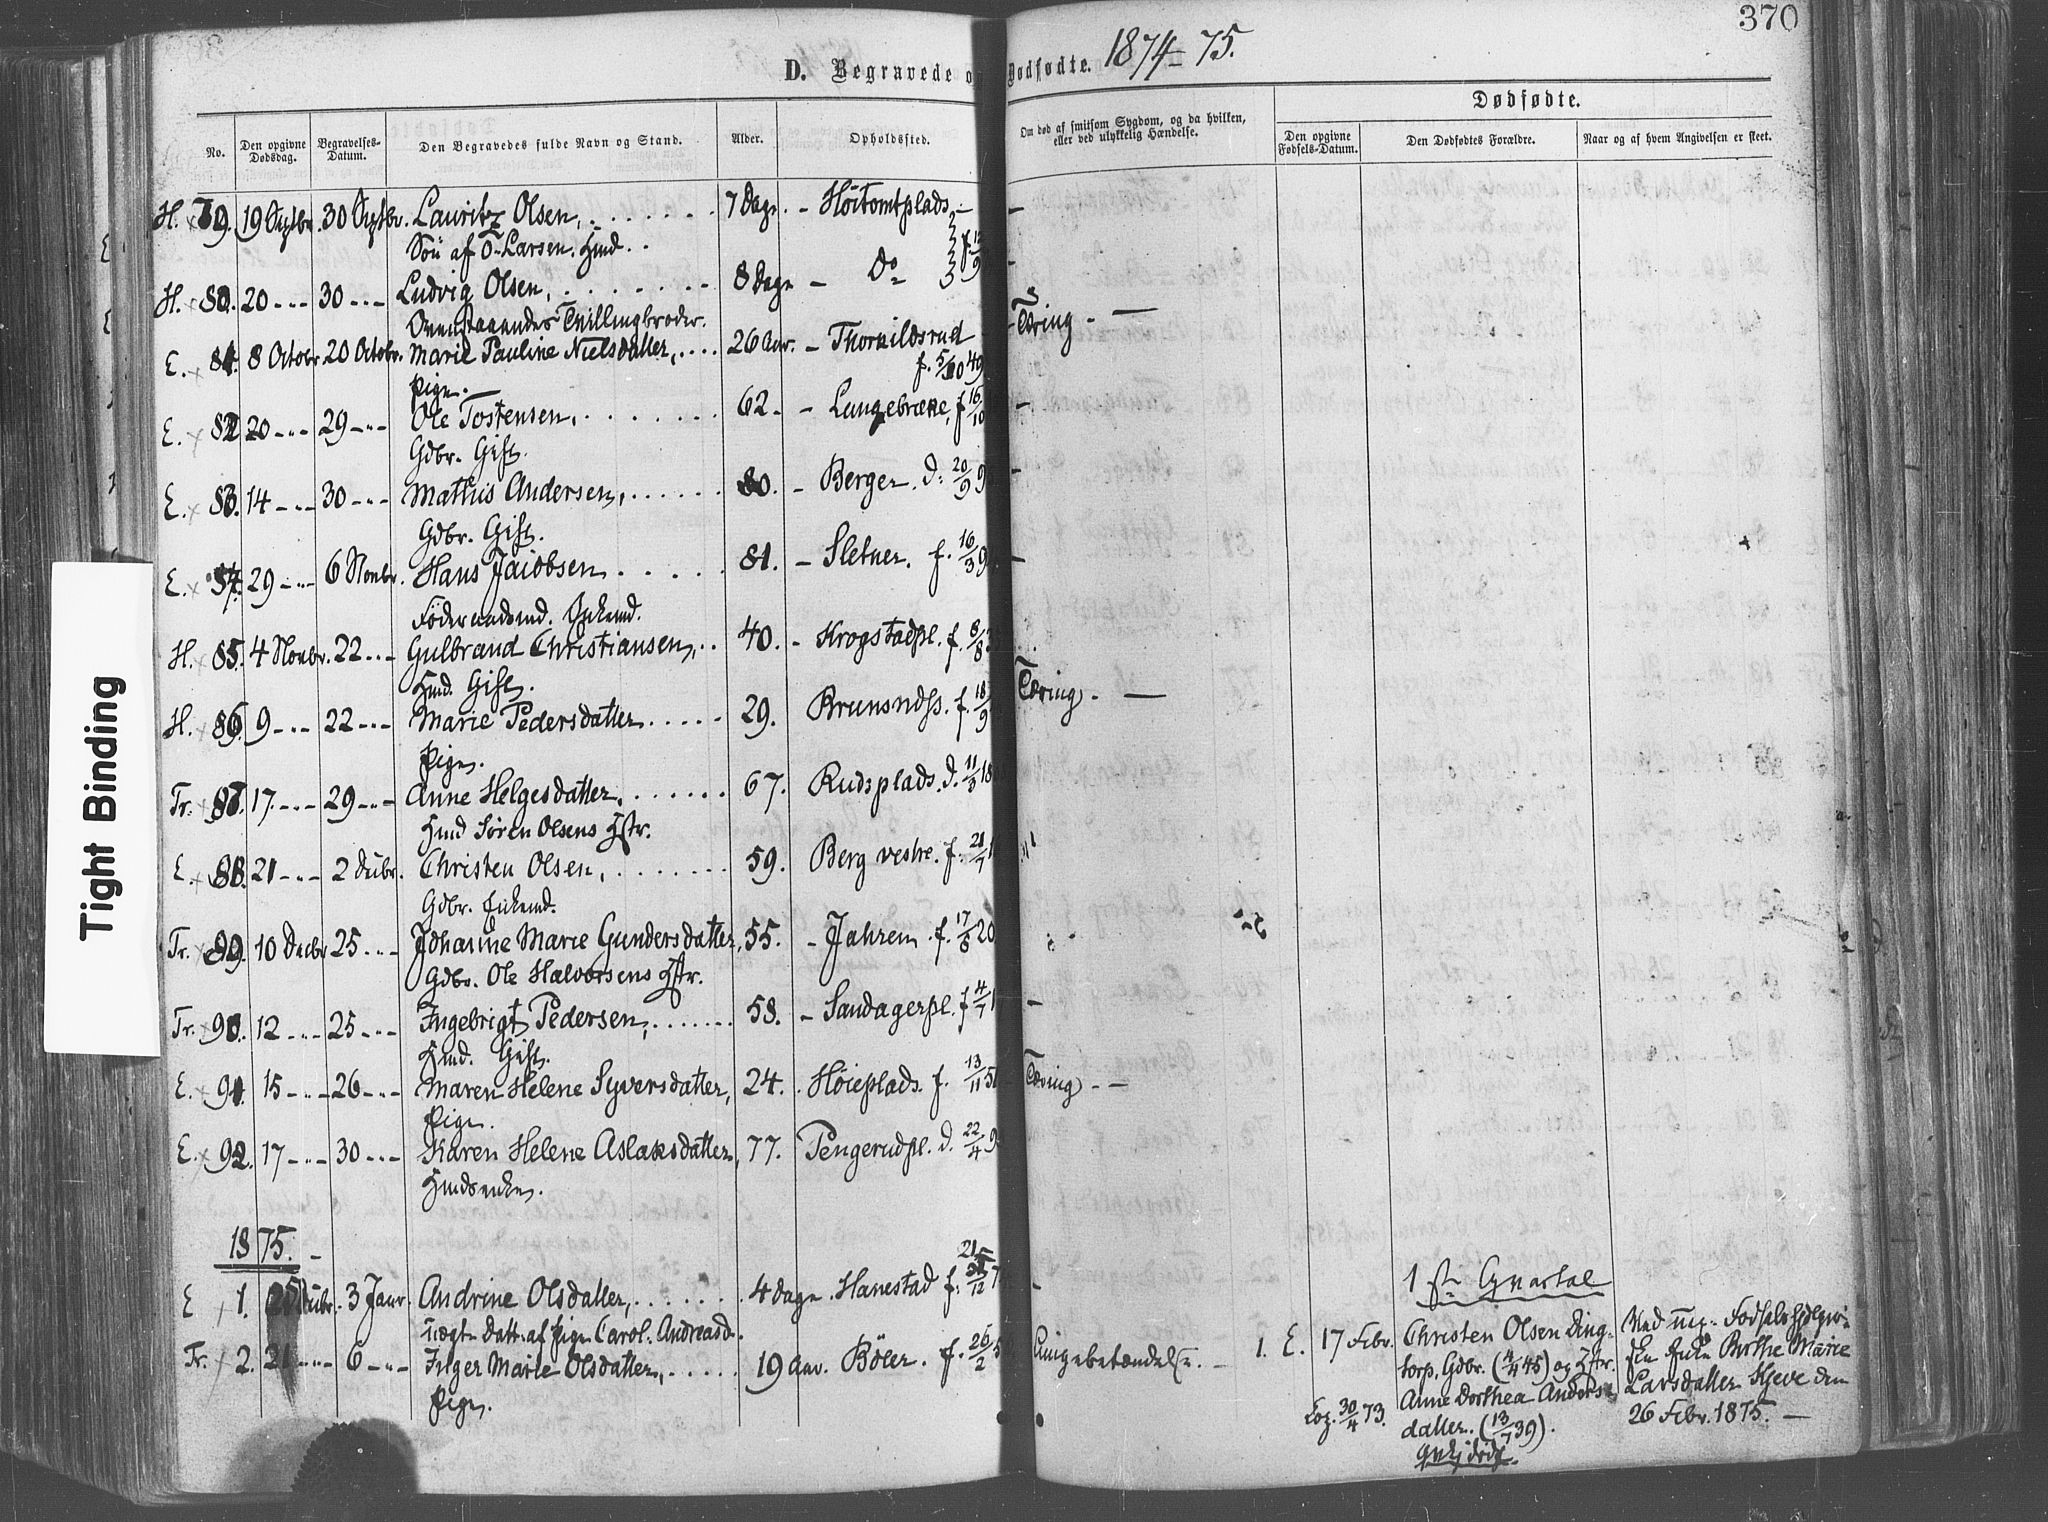 370
D. Begravede og Dødfødte. 1874-75.
Dødfødte.
No.
Den opgivne Dødsdag.
Begravelses-Datum.
Den Begravedes fulde Navn og Stand.
Alder.
Opholdssted.
Om død af smitsom Sygdom, og da hvilken, eller ved ulykkelig Hændelse.
Den opgivne Fødsels-Datum.
Den Dødfødtes Forældre.
Naar og af hvem Angivelsen er skeet.
H. 79. 19 Septbr. 30 Septbr. Lauritz Olsen, 7 Dage. - Höitomtplads -
Sön af O. Larsen. Hmd.
H. 80. 20 -"- 30 -"- Ludvig Olsen, 8 Dage - Do
Ovenstaaendes Tvillingbroder.
E. 81. 8 Octobr 20 Octobr. Marie Pauline Nielsdatter, 26 Aar. - Thorkildsrud - Tæring -
Pige. f. 5/10 49
E. 82 20 -"- 29 -"- Ole Tostensen, 62. - Langebræke, f. 16/10 -
Gdbr. Gift.
E. 83. 14 -"- 30 -"- Mathis Andersen, 80. - Berger. d. 20/9 9 -
Gdbr. Gift.
E. 84. 29 -"- 6 Novbr. Hans Jacobsen 81. - Sletner. f. 16/3 9 -
Föderaadsmd. Enkemd.
H. 85. 4 Novbr. 22 -"- Gulbrand Christiansen, 40. - Krogstadpl. f. 8/8 3
Hmd. Gift.
H. 86. 9 -"- 22 -"- Marie Pedersdatter 29. f. 18/9 Tæring -
Pige.
Tr. 87. 17 -"- 29 -"- Anne Helgesdatter, 67. Rudsplads. d. 11/3 18
Hmd Sören Olsens Hstr.
E. 88. 21 -"- 2 Decbr. Christen Olsen, 59. Berg vestre. f. 21/7 1
Gdbr. Enkemd.
Tr. 89. 10 Decbr 25 -"- Johanne Marie Gundersdatter, 55. - Jahren. f. 17/8 20
Gdbr. Ole Halvorsens Hstr.
Tr. 90. 12 -"- 25 -"- Ingebrigt Pedersen, 58. - Sandagerpl. f 4/7 1 -
Hmd. Gift.
E. 91. 15 -"- 26 -"- Maren Helene Syversdatter, 24. Höieplads. f. 13/11 50 Tæring -
Pige.
E. 92. 17 -"- 30 -"- Karen Helene Aslaksdatter, 77. Tengerudpl. d. 22/4 9
Hmdsenke.
1875.
E 1. 25 Decbr. 3 Janr. Andrine Olsdatter, 4 dage. Hanestad f. 21/12 7 -
uægte Datt. af Pige Carol. Andreasd.
Tr. 2. 21 -"- 6 -"- Inger Marie Olsdatter, 19 Aar. Böler. f. 26/2 5 Lungebetændelse. -
Pige.
1ste Qvartal
1. E. 17 Febr. Christen Olsen Ding-
torp, Gdbr. (4/4 45) og Hstr.
Anne Dorthea Anders-
datter. (13/7 39).
Cop. 30/4 73.
Fødselshjelper-
Enke Berthe Marie
Larsdatter Skjeve den
26 Febr. 1875. -
Tight Binding